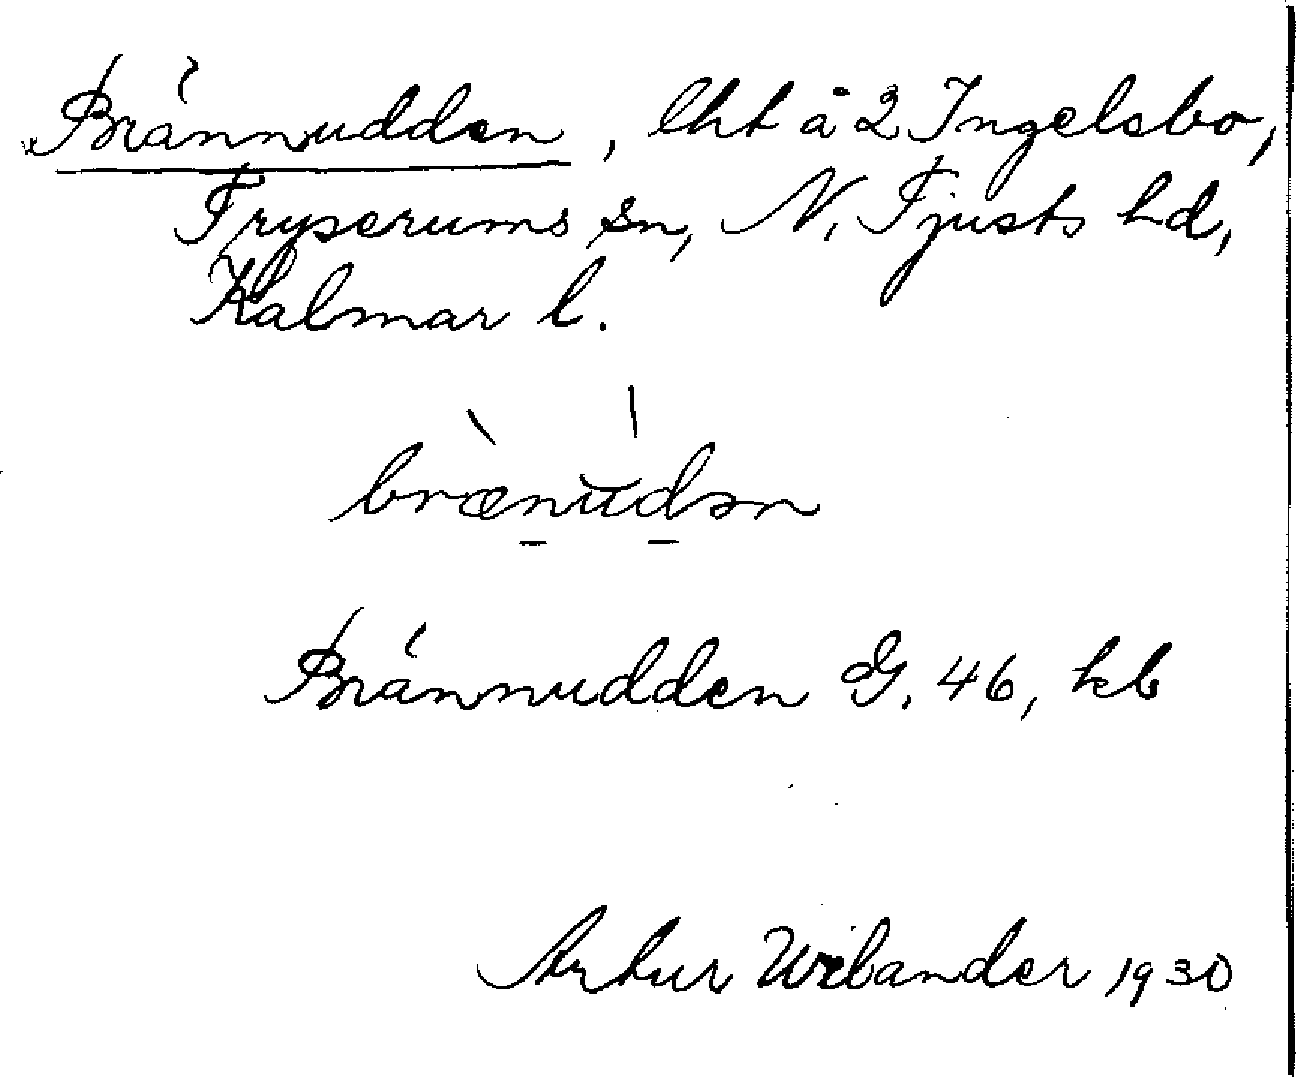 Brännudden, lht å 2 Ingelsbo,
Tryserums sn, N. Tjusts hd,
Kalmar l.
brænudən
Brännudden G. 46, kb
Artur Wilander 1930